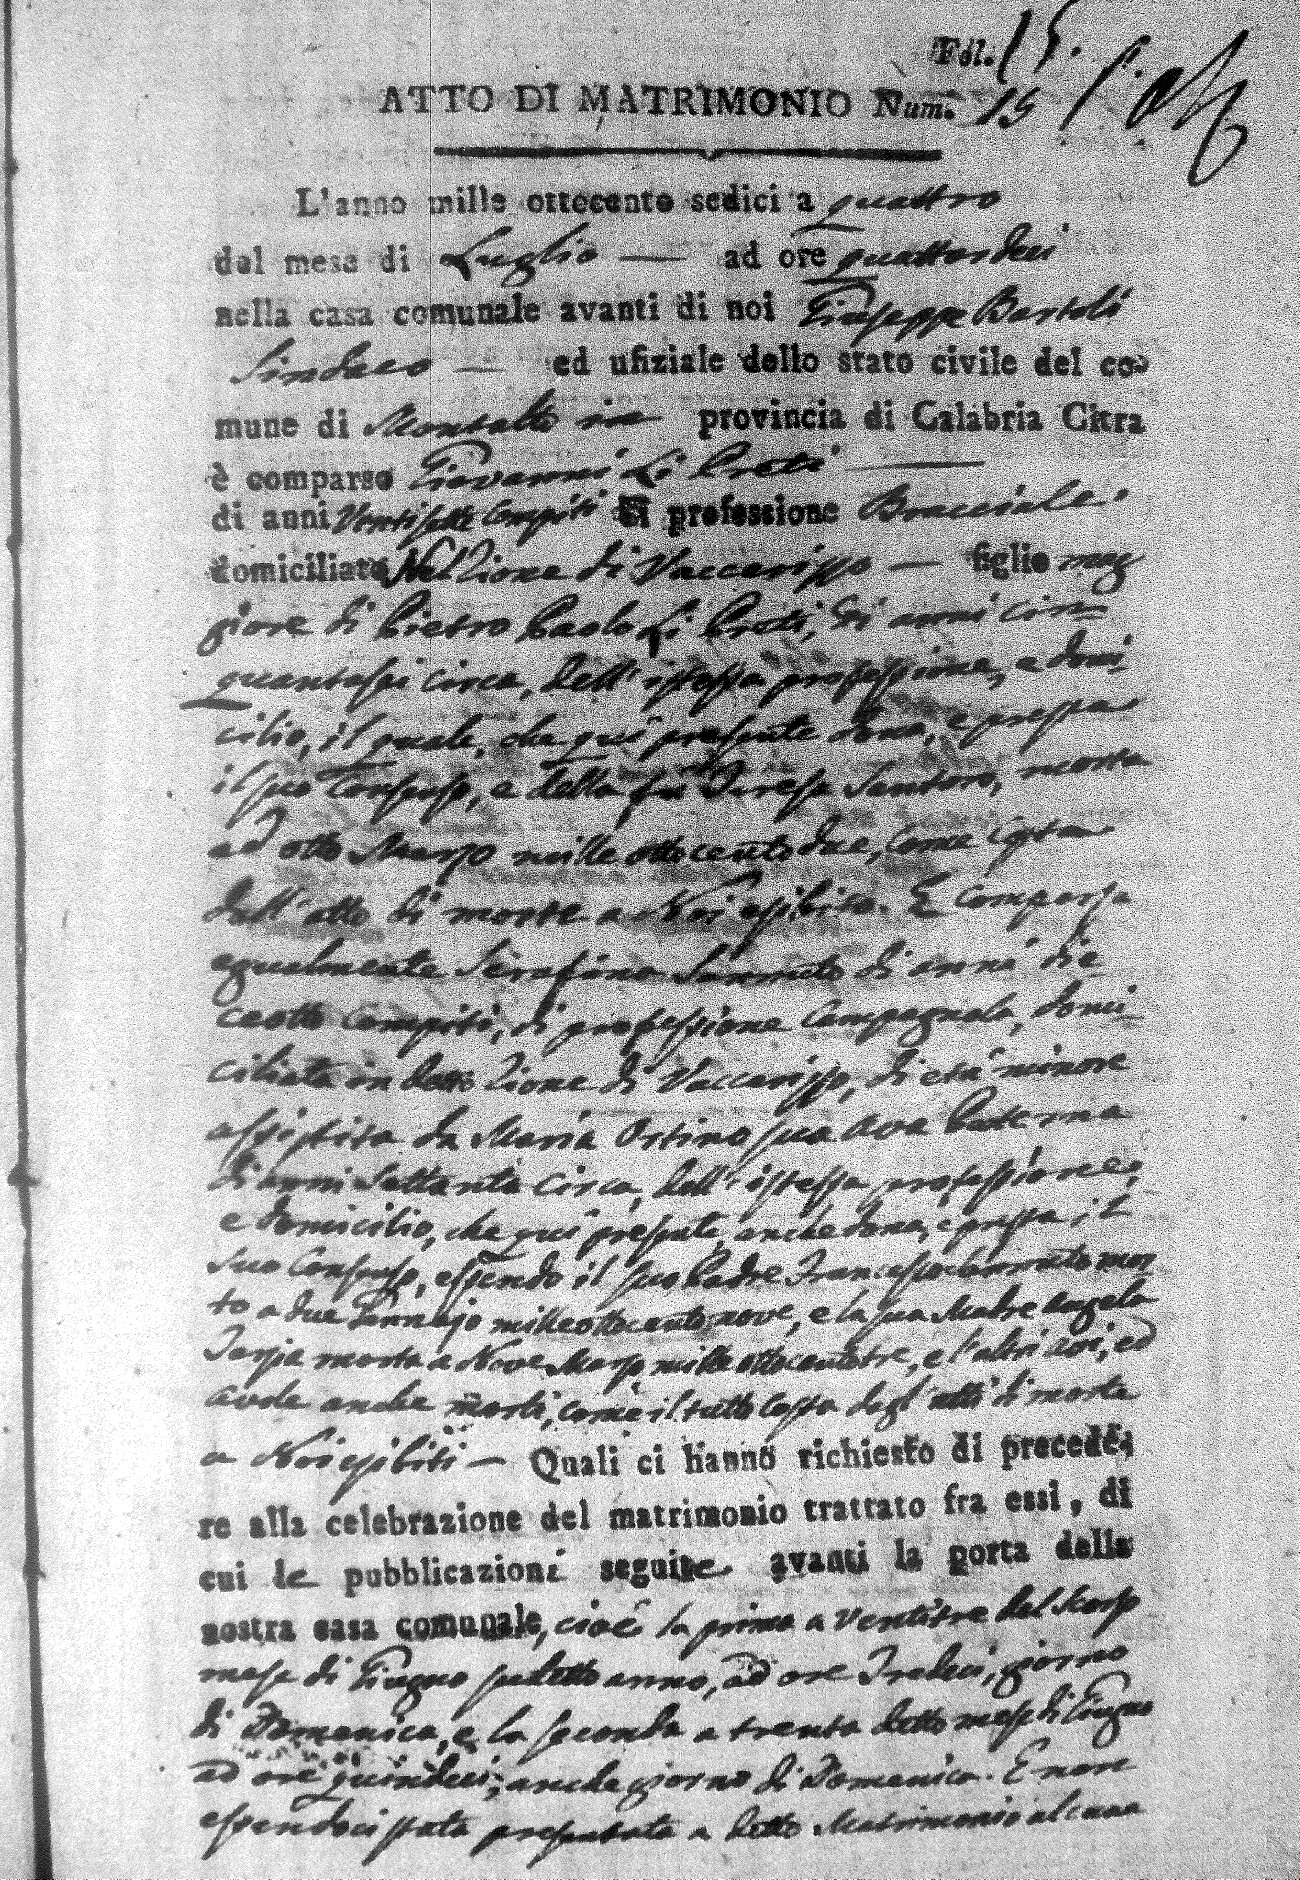 Fol. 15.
ATTO DI MATRIMONIO Num. 15
L'anno mille ottecento sedici a quattro
del mese di Luglio — ad ore quattordeci
nella casa comunale avanti di noi Giuseppe Bartoli
Sindaco — ed ufiziale dello stato civile del co-
mune di Montalto in provincia di Calabria Citra
è comparso Giovanni Li Preti —
di anni Ventisette compiti di professione Bracciale
domiciliato Nel Rione di Vaccarizzo — figlio mag
giore di Pietro Paolo Li Preti, di anni cin=
quantasei circa, dell'istessa professione, e domi
cilio, il quale, che qui presente dona, e pressa
il suo Consenso, e della fu Teresa Santoro, morta
ad otto Marzo mille ottocento due, come costa
dall'atto di morte a Noi esibito. E comparsa
egualmente Serafina Iannuto di anni die=
ceotto compiti, di professione Campagnola, domi
ciliata in detto Rione di Vaccarizzo, di età minore
assistita da Maria Ortino sua Ava Paterna
di anni Settanta circa, dell'istessa professione,
e domicilio, che qui presente, anche dona, e pressa il
suo Consenso, essendo il suo Padre Francesco Iannuto mor
to a due Gennajo milleottocento nove, e la sua Madre Angela
morta a Nove Marzo mille ottocentotre, e l'altri Avi, ed
avole anche morti, come il tutto costa dagl'atti di morte
a Noi esibiti — Quali ci hanno richiesto di precede-
re alla celebrazione del matrimonio trattato fra essi, di
cui le pubblicazioni seguite avanti la porta della
nostra casa comunale, cioè la prima a ventitre del scorso
mese di Giugno suddetto anno, ad ore Tredeci, giorno
di Domenica, e la seconda a trenta detto mese di Giugno
ad ore quindeci, anche giorno di Domenica. E non
essendoci stata presentata a detto Matrimonio alcuna